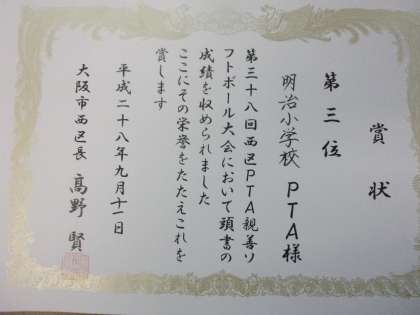 賞状
第三位
明治小学校PTA様
第三十八回西区PTA親善ソ
フトボール大会において頭書の
成績を収められました
ここにその栄誉をたたえこれを
賞します
平成二十八年九月十一日
大阪市西区長 髙野賢